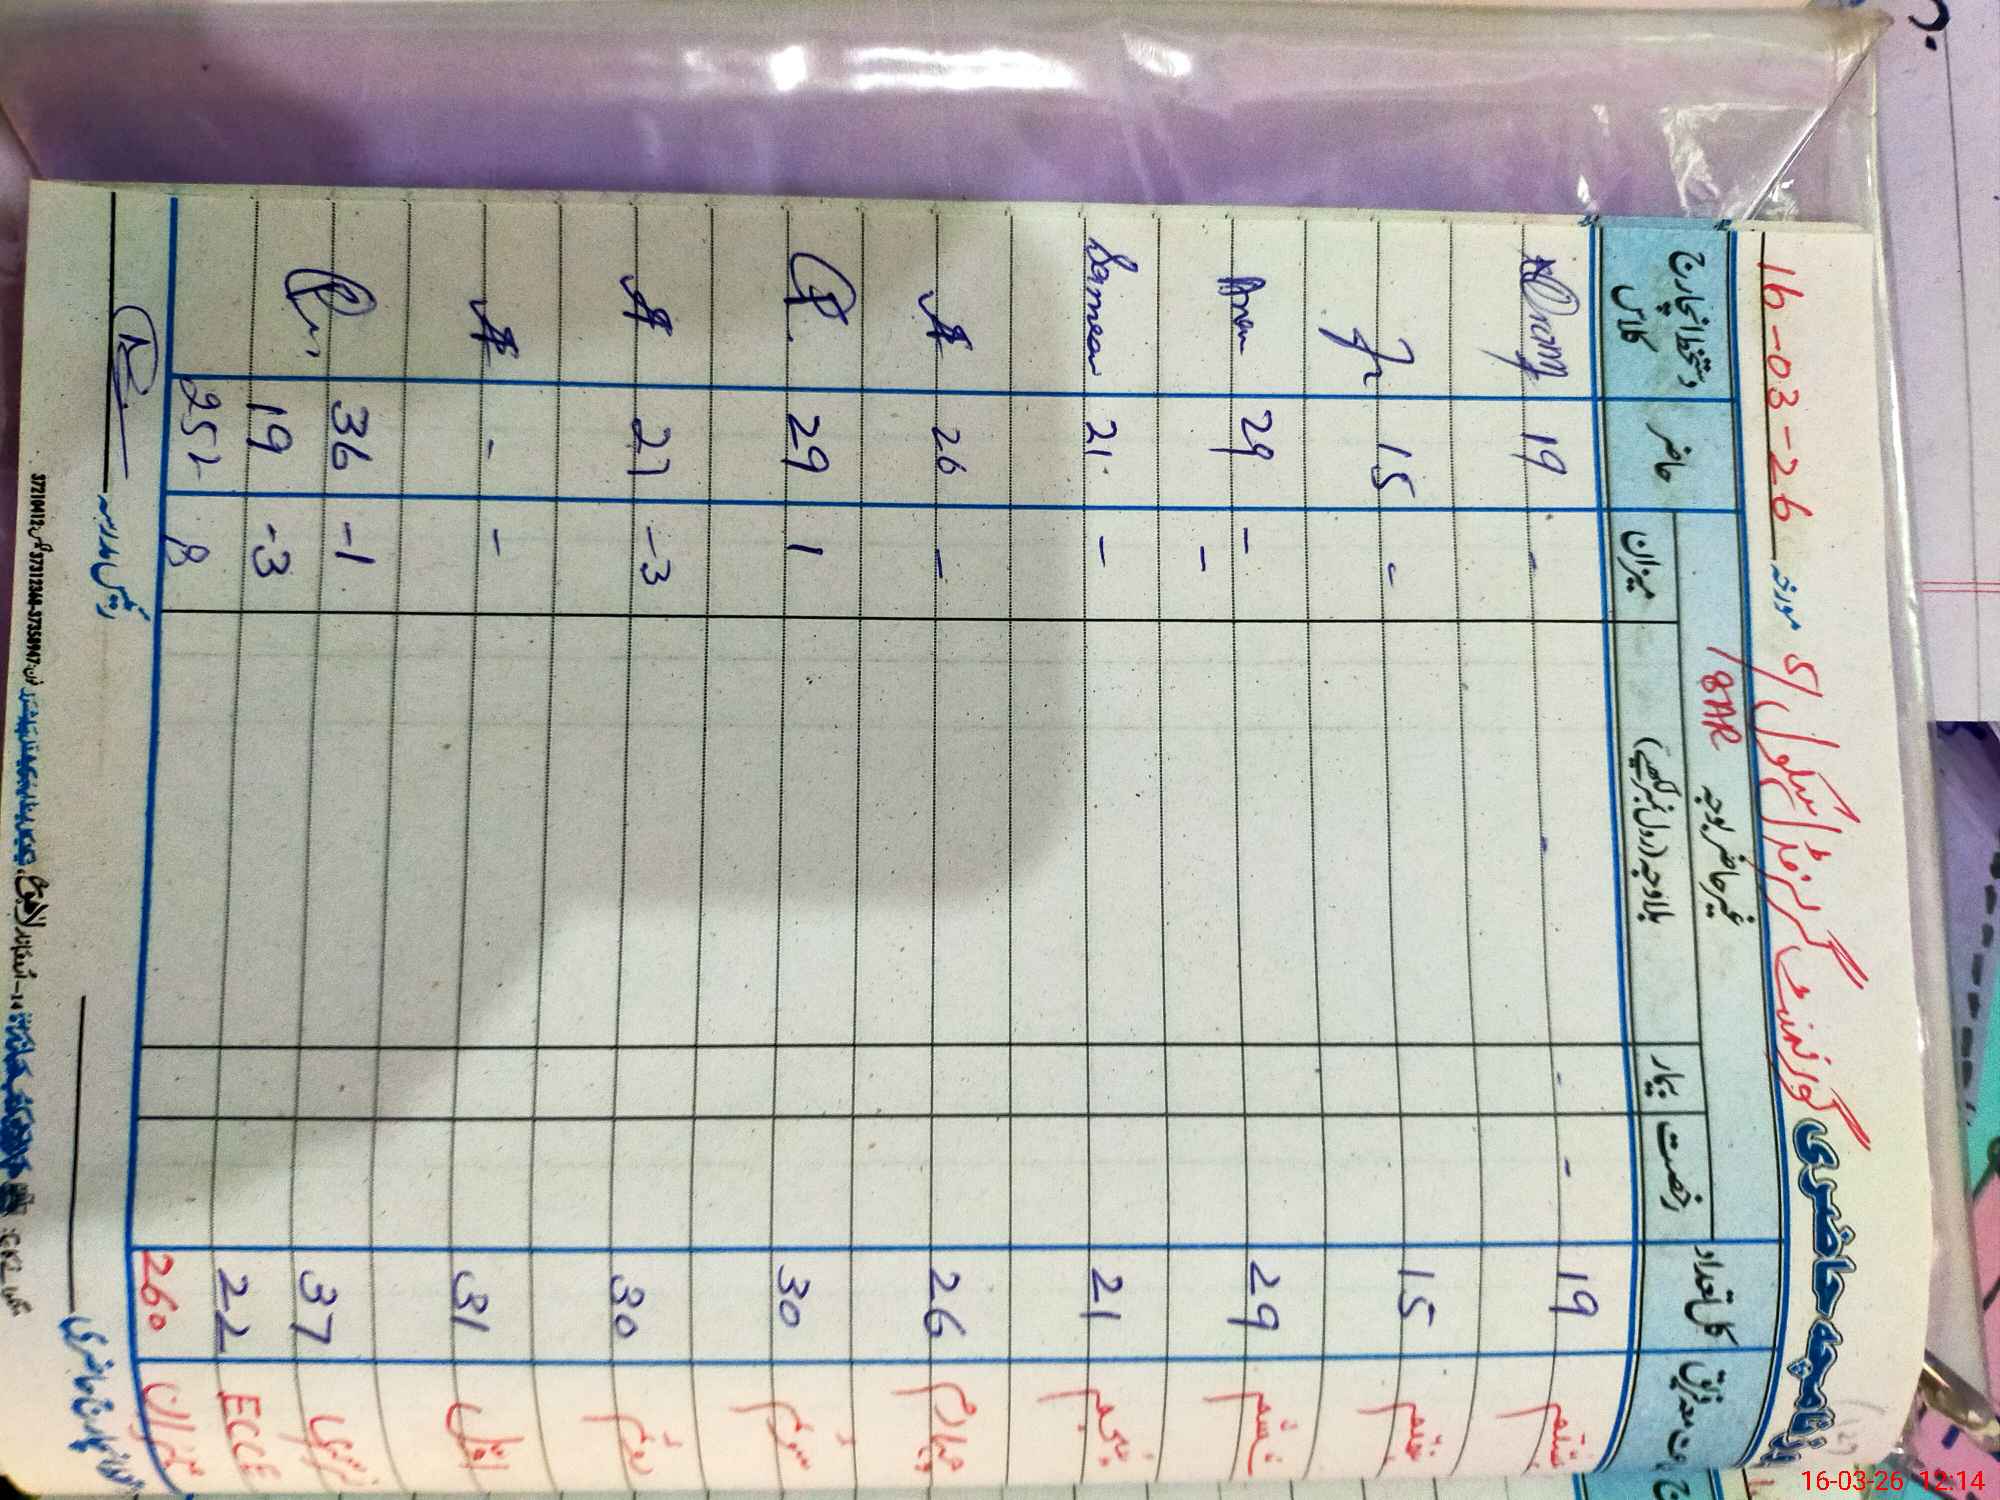 روزنامچہ حاضری گورنمنٹ گرلز مڈل سکول 5/ مورخہ 16-03-26
18AR
جماعت معہ فریق کل تعداد غیر حاضر بوجہ حاضر دستخط انچارج کلاس
رخصت بیمار بلاوجہ (رول نمبر لکھیں) میزان
ہشتم 19 - - - - 19
ہفتم 15 - 15
ششم 29 - - 29
پنجم 21 - 21 Sameea
چہارم 26 - 26
سوئم 30 1 29
دوئم 30 -3 27
اول 31 - -
نرسری 37 -1 36
ECCE 22 -3 19
میزان 260 8 252
انچارج حاضری رئیس مدرسہ
16-03-26 12:14